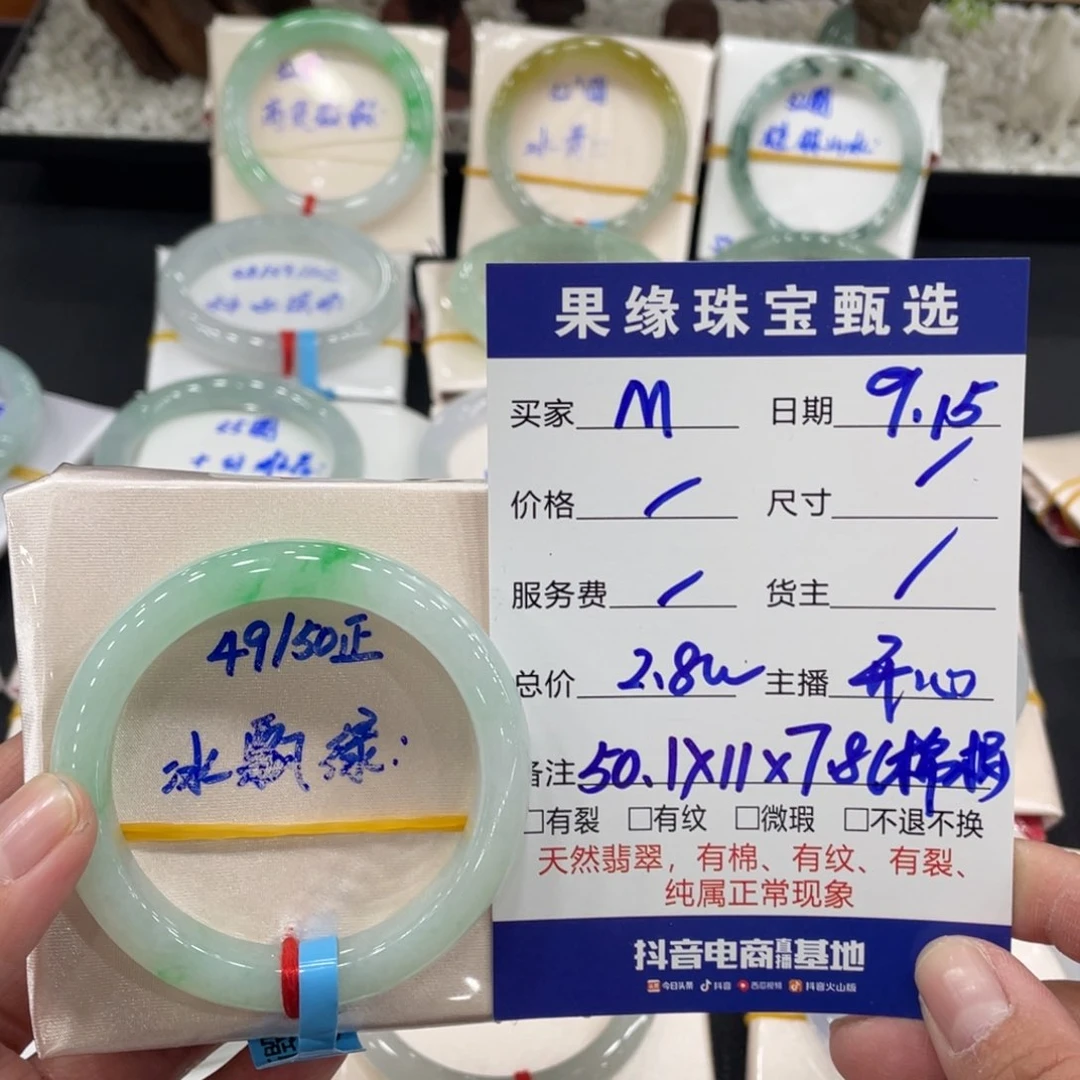 水黄
果缘珠宝甄选
买家 M 日期 9.15
价格 / 尺寸 /
服务费 / 货主 /
总价 2.8w 主播 开心
备注 50.1×11×7.8(
□有裂 □有纹 □微瑕 □不退不换
天然翡翠,有棉、有纹、有裂、
纯属正常现象
抖音电商直播基地
今日头条 抖音 西瓜视频 抖音火山版
49/50正
冰飘绿: